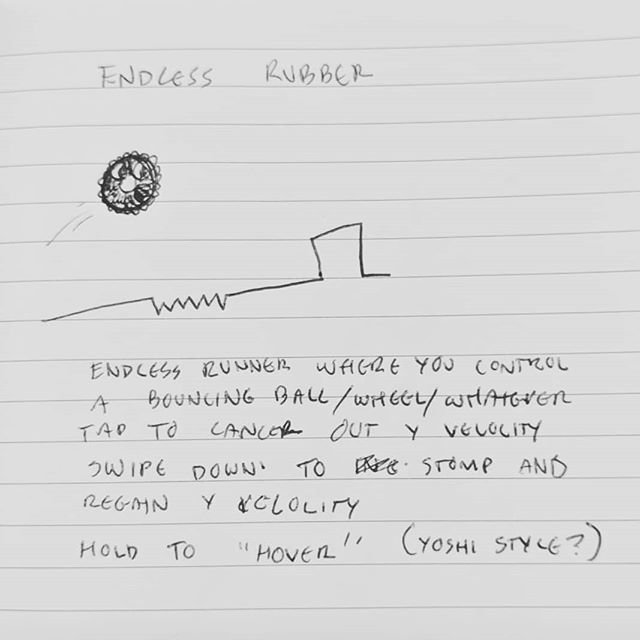 ENDLESS RUBBER
ENDLESS RUNNER WHERE YOU CONTROL
A BOUNCING BALL/WHEEL/WHATEVER
TAP TO CANCER OUT Y VELOCITY
SWIPE DOWN TO STOMP AND
REGAIN Y VELOCITY
HOLD TO "HOVER" (YOSHI STYLE?)